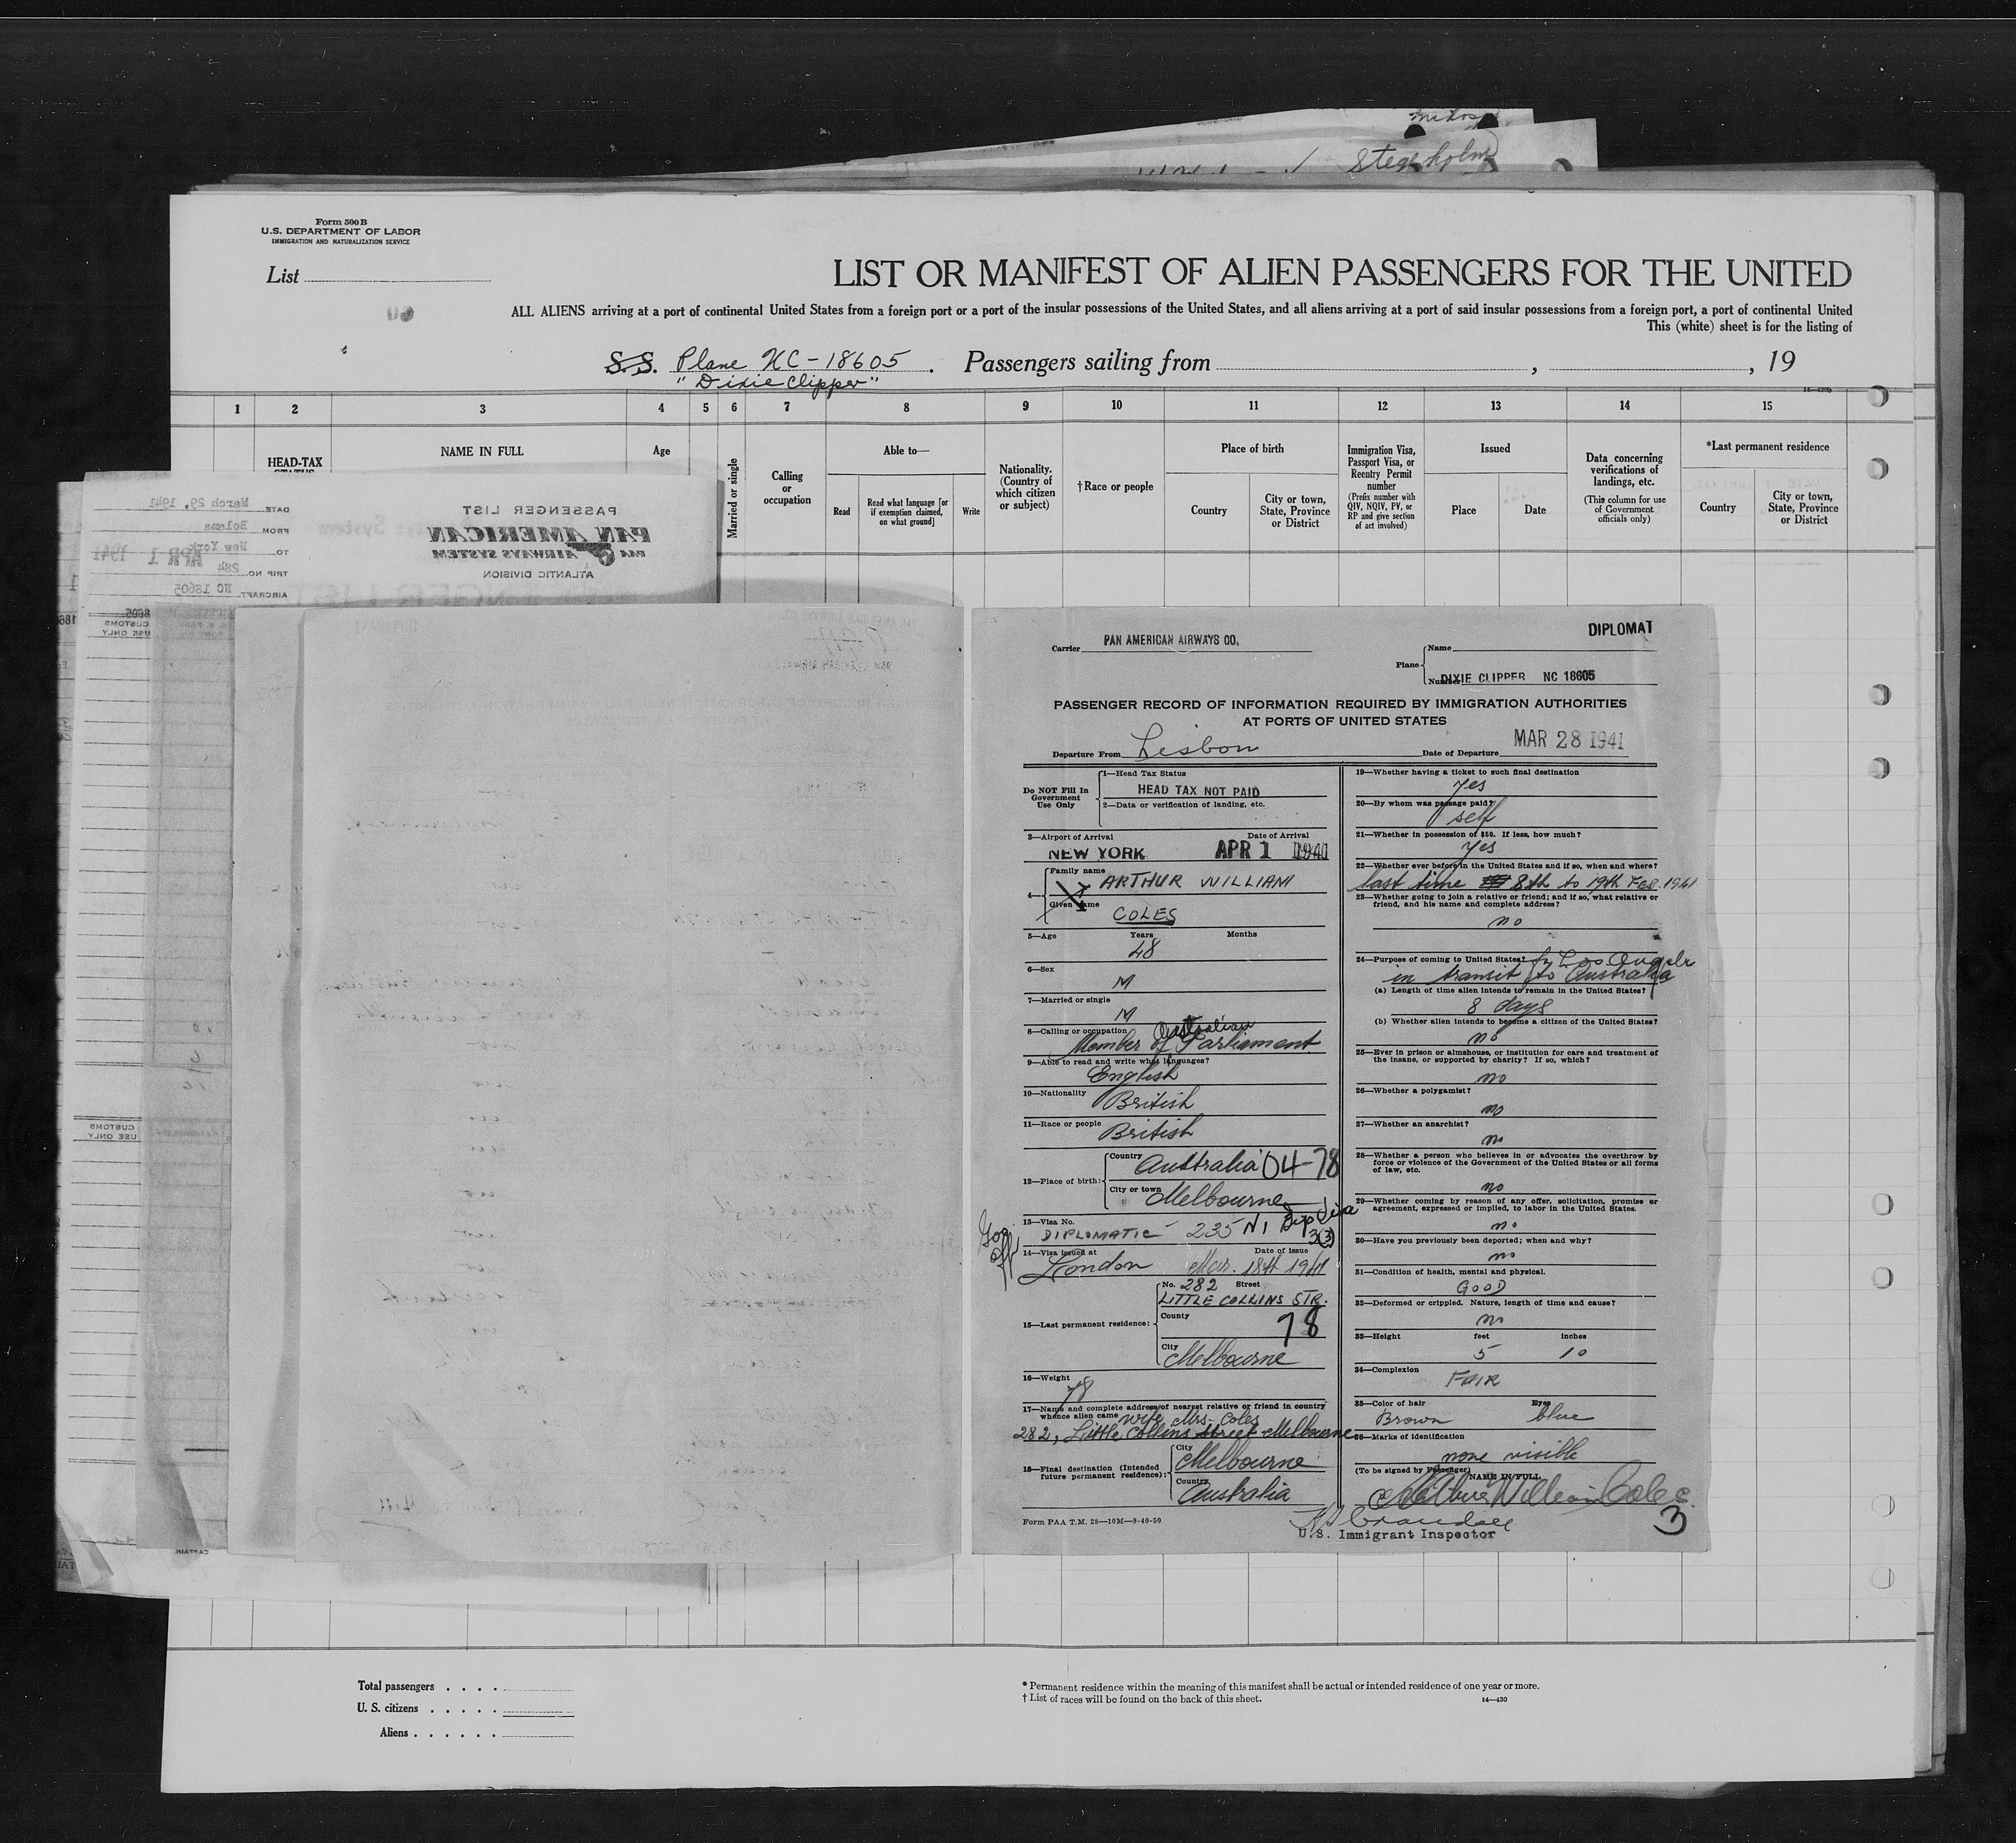 Stegeholm
Form 500 B
U.S. DEPARTMENT OF LABOR
IMMIGRATION AND NATURALIZATION SERVICE
List
60
LIST OR MANIFEST OF ALIEN PASSENGERS FOR THE UNITED
ALL ALIENS arriving at a port of continental United States from a foreign port or a port of the insular possessions of the United States, and all aliens arriving at a port of said insular possessions from a foreign port, a port of continental United
This (white) sheet is for the listing of
S.S. Plane NC-18605. Passengers sailing from , , 19
"Dixie Clipper"
1 2 3 4 5 6 7 8 9 10 11 12 13 14 15
HEAD-TAX
NAME IN FULL
Age
Married or single
Calling or occupation
Able to—
Read
Read what language [or if exemption claimed, on what ground]
Write
Nationality. (Country of which citizen or subject)
†Race or people
Place of birth
Country
City or town, State, Province or District
Immigration Visa, Passport Visa, or Reentry Permit number
(Prefix number with QIV, NQIV, PV, or RP and give section of act involved)
Issued
Place
Date
Data concerning verifications of landings, etc.
(This column for use of Government officials only)
*Last permanent residence
Country
City or town, State, Province or District
PASSENGER LIST
PAN AMERICAN
PAA AIRWAYS SYSTEM
ATLANTIC DIVISION
DATE March 29, 1941
FROM Bolama
TO New York
APR 1 1941
TRIP NO. 284
AIRCRAFT NC 18605
CUSTOMS USE ONLY
CUSTOMS USE ONLY
CAPTAIN
DIPLOMAT
Carrier PAN AMERICAN AIRWAYS CO,
Plane Name
Number DIXIE CLIPPER NC 18605
PASSENGER RECORD OF INFORMATION REQUIRED BY IMMIGRATION AUTHORITIES
AT PORTS OF UNITED STATES
Departure From Lisbon Date of Departure MAR 28 1941
Do NOT Fill In Government Use Only
1—Head Tax Status
HEAD TAX NOT PAID
2—Data or verification of landing, etc.
3—Airport of Arrival Date of Arrival
NEW YORK APR 1 1941
4— Family name
ARTHUR WILLIAM
Given name
COLES
5—Age Years Months
48
6—Sex
M
7—Married or single
M
8—Calling or occupation Australian
Member of Parliament
9—Able to read and write what languages?
English
10—Nationality
British
11—Race or people
British
12—Place of birth: Country
Australia 04-78
City or town
Melbourne
13—Visa No.
DIPLOMATIC 235 N1 Dip Visa
3(3)
Gov
off
14—Visa issued at Date of issue
London Mar. 18th 1941
15—Last permanent residence: No. 282 Street
LITTLE COLLINS STR.
County
78
City
Melbourne
16—Weight
78
17—Name and complete address of nearest relative or friend in country
whence alien came wife, Mrs. Coles
282, Little Collins Street Melbourne
18—Final destination (Intended future permanent residence):
City
Melbourne
Country
Australia
Form PAA T.M. 28—10M—9-40-50
19—Whether having a ticket to such final destination
yes
20—By whom was passage paid?
self
21—Whether in possession of $50. If less, how much?
yes
22—Whether ever before in the United States and if so, when and where?
last time 8th to 19th FEB. 1941
23—Whether going to join a relative or friend; and if so, what relative or
friend, and his name and complete address?
no
24—Purpose of coming to United States? fr Los Angeles
in transit to Australia
(a) Length of time alien intends to remain in the United States?
8 days
(b) Whether alien intends to become a citizen of the United States?
no
25—Ever in prison or almshouse, or institution for care and treatment of
the insane, or supported by charity? If so, which?
no
26—Whether a polygamist?
no
27—Whether an anarchist?
no
28—Whether a person who believes in or advocates the overthrow by
force or violence of the Government of the United States or all forms
of law, etc.
no
29—Whether coming by reason of any offer, solicitation, promise or
agreement, expressed or implied, to labor in the United States.
no
30—Have you previously been deported; when and why?
no
31—Condition of health, mental and physical.
GOOD
32—Deformed or crippled. Nature, length of time and cause?
no
33—Height feet inches
5 10
34—Complexion
FAIR
35—Color of hair Eyes
Brown blue
36—Marks of identification
none visible
(To be signed by Passenger)
NAME IN FULL
Arthur William Coles
3
Crandall
U.S. Immigrant Inspector
Total passengers
U. S. citizens
Aliens
* Permanent residence within the meaning of this manifest shall be actual or intended residence of one year or more.
† List of races will be found on the back of this sheet.
14—430